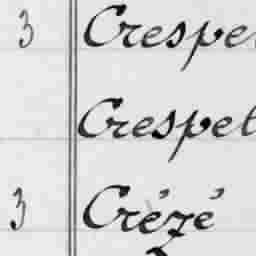 3 Crespel
Crespel
3 Crézé